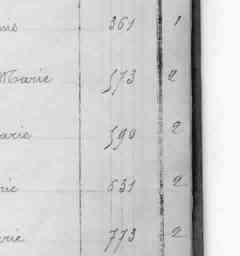 ms 361 1
Marie 573 2
arie 590 2
rie 631 2
rie 773 2